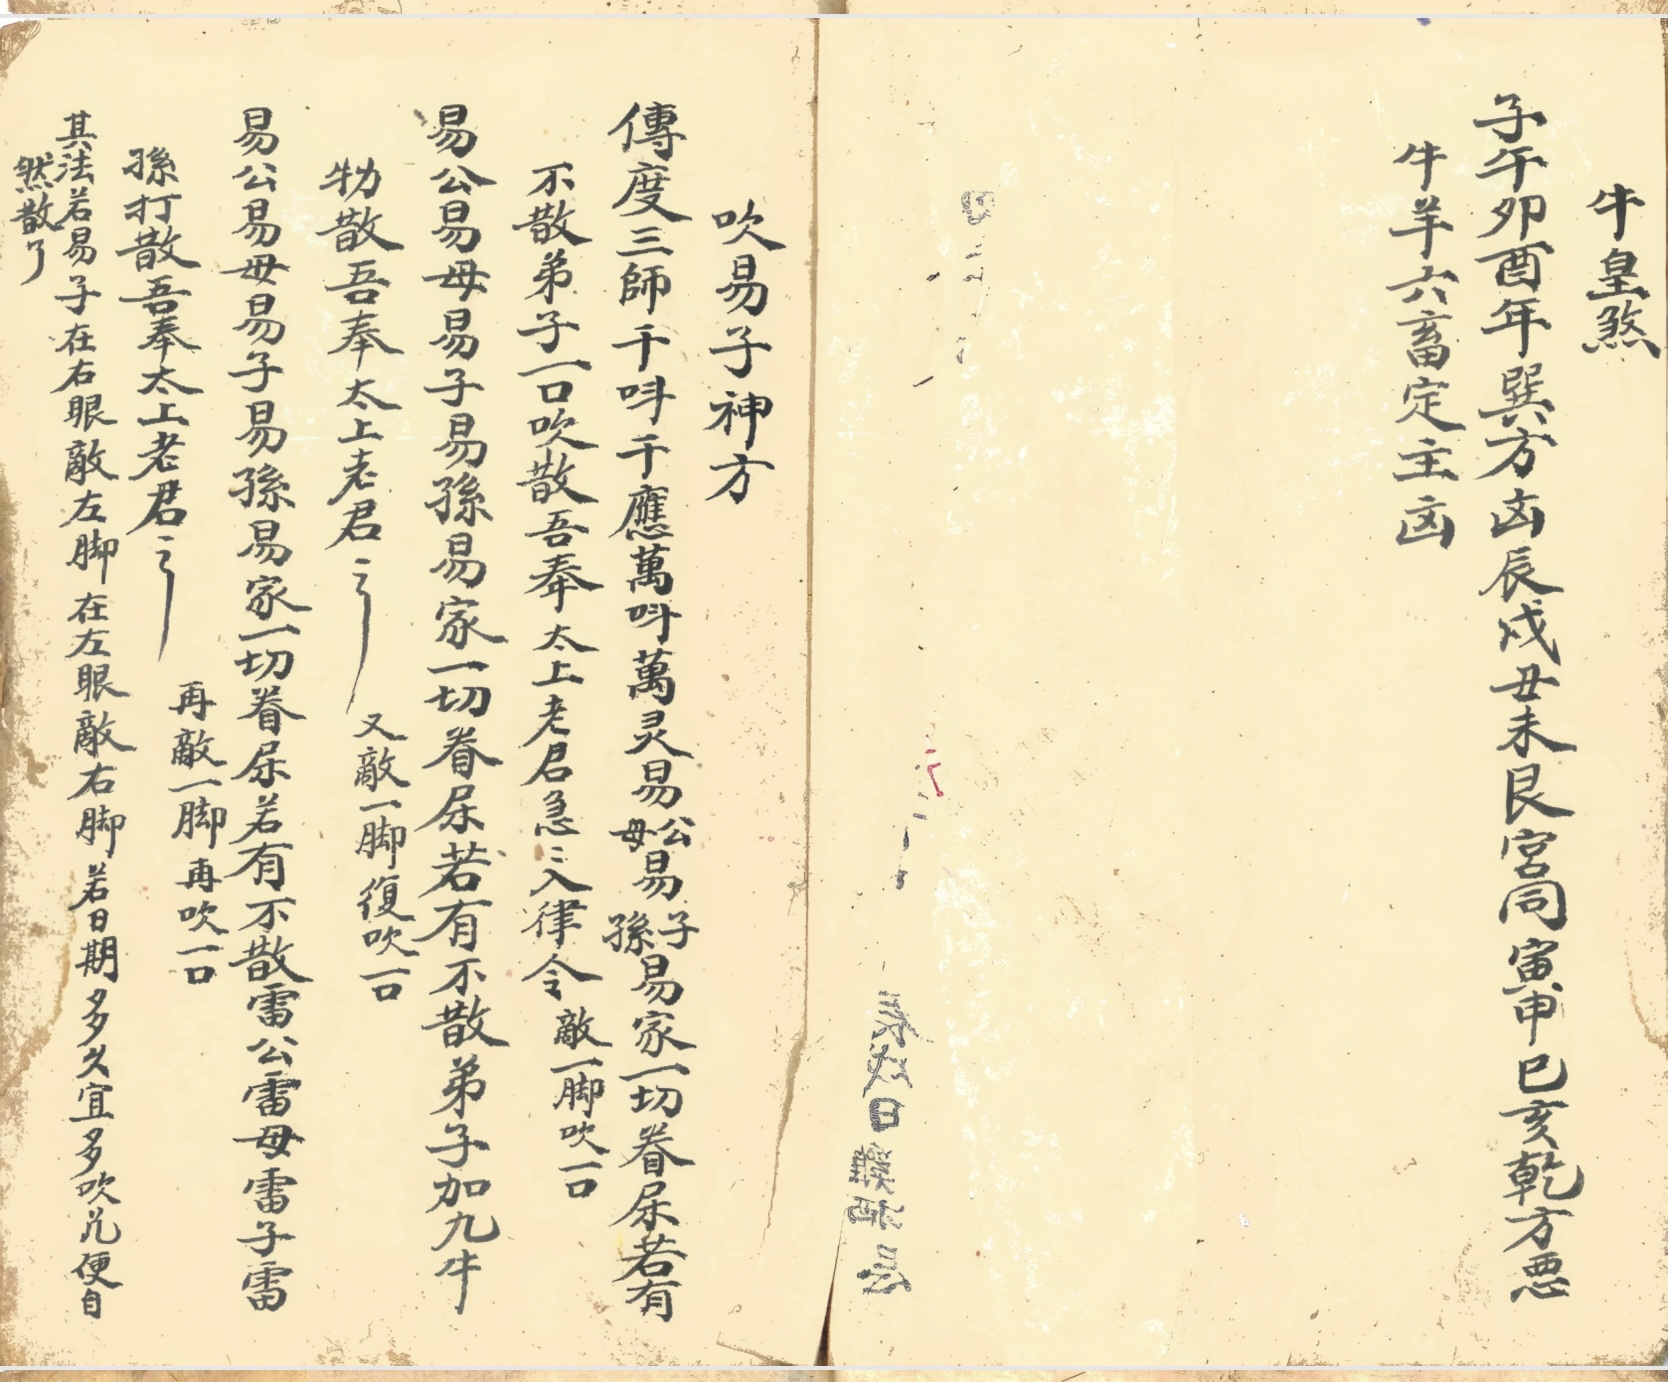 牛皇煞
子午卯酉年巽方凶辰戌丑未艮宮同寅申巳亥乾方悪
牛羊六畜定主凶
吹易子神方
傳度三師千呌千應萬呌萬灵易公母易子孫易家一切眷屎若有
不散弟子一口吹散吾奉太上老君急〻入律令敵一脚吹一口
易公易母易子易孫易家一切眷屎若有不散弟子加九牛
牞散吾奉太上老君〻 又敵一脚復吹一口
易公易母易子易孫易家一切眷屎若有不散雷公雷母雷子雷
孫打散吾奉太上老君〻 再敵一脚再吹一口
其法若易子在右眼敵左脚在左眼敵右脚若日期多久宜多吹几便自
然散了